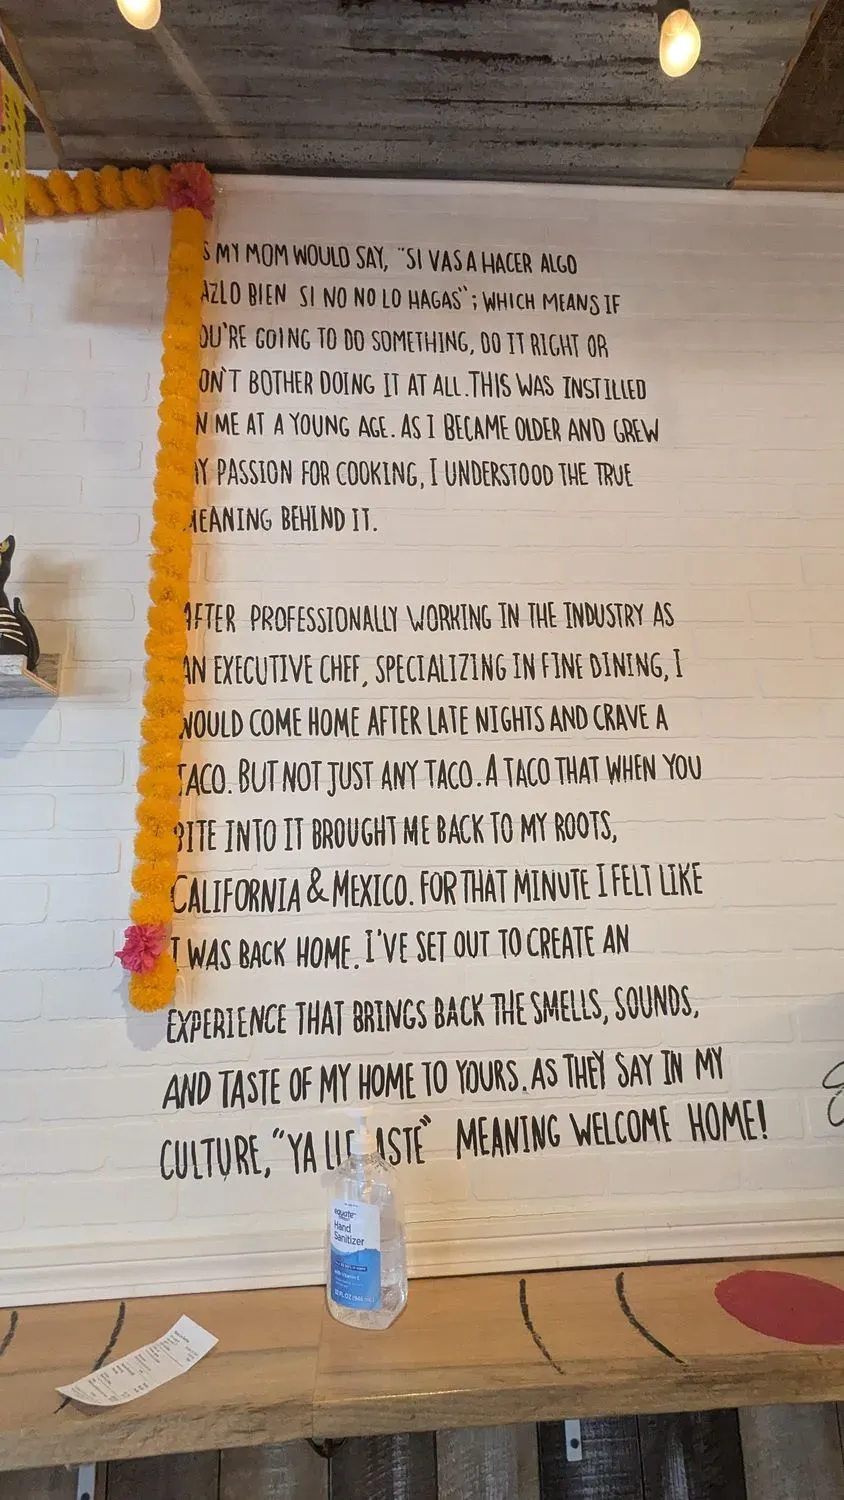 S MY MOM WOULD SAY, "SI VAS A HACER ALGO
AZLO BIEN SI NO NO LO HAGAS"; WHICH MEANS IF
OU'RE GOING TO DO SOMETHING, DO IT RIGHT OR
ON'T BOTHER DOING IT AT ALL. THIS WAS INSTILLED
N ME AT A YOUNG AGE. AS I BECAME OLDER AND GREW
MY PASSION FOR COOKING, I UNDERSTOOD THE TRUE
MEANING BEHIND IT.
AFTER PROFESSIONALLY WORKING IN THE INDUSTRY AS
AN EXECUTIVE CHEF, SPECIALIZING IN FINE DINING, I
WOULD COME HOME AFTER LATE NIGHTS AND CRAVE A
TACO. BUT NOT JUST ANY TACO. A TACO THAT WHEN YOU
BITE INTO IT BROUGHT ME BACK TO MY ROOTS,
CALIFORNIA & MEXICO. FOR THAT MINUTE I FELT LIKE
I WAS BACK HOME. I'VE SET OUT TO CREATE AN
EXPERIENCE THAT BRINGS BACK THE SMELLS, SOUNDS,
AND TASTE OF MY HOME TO YOURS. AS THEY SAY IN MY
CULTURE, "YA LLE ASTE" MEANING WELCOME HOME!
equate
Hand
Sanitizer